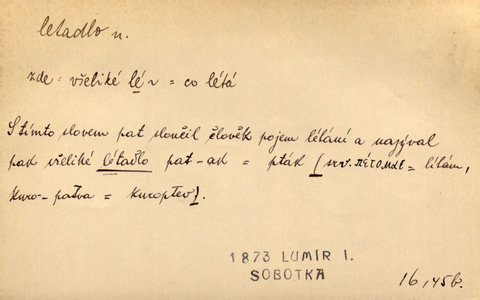 letadlo n.
zde: všeliké lé = co létá
S tímto slovem pat sloučil člověk pojem létání a nazýval
pak všeliké létadlo pat-ak = pták [srv. πέτομαι = létám,
kuro-patva = kuroptev].
1873 LUMÍR I.
SOBOTKA
16, 456.